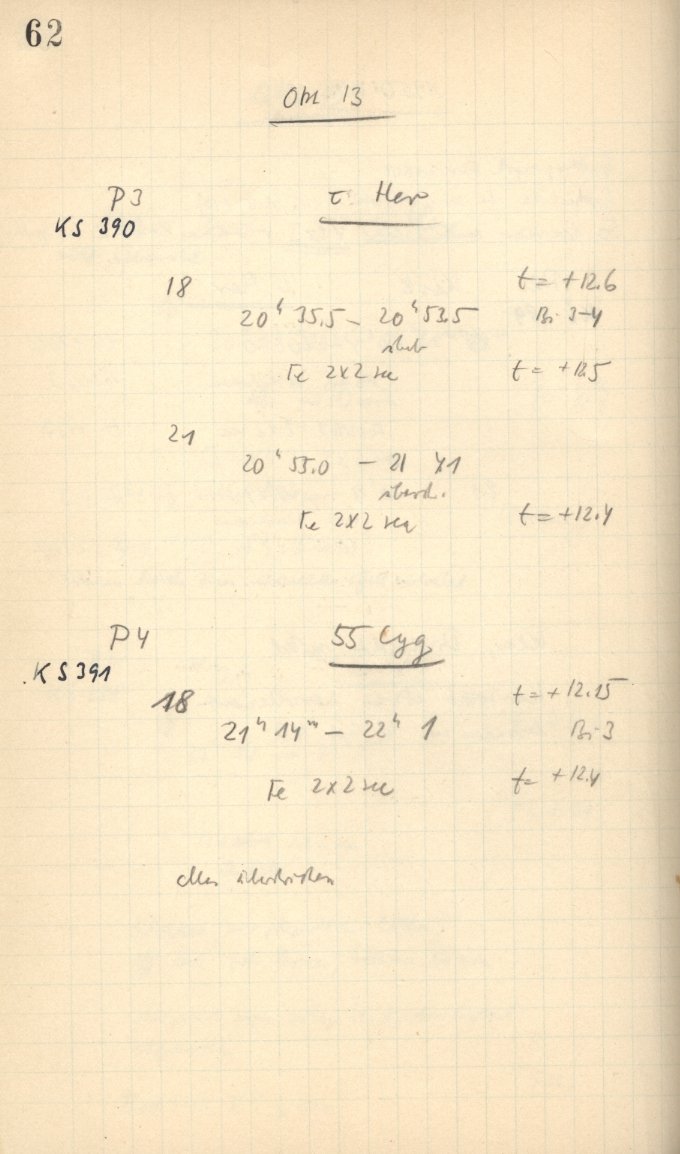 62
Okt 13
P3 τ Her
KS 390
18 t = +12.6
20ʰ 35.5 – 20ʰ 53.5 Bi 3-4
Fe 2x2 sec t = +12.5
21
20ʰ 55.0 – 21
Fe 2x2 sec t = +12.4
P4 55 Cyg
KS 391
18 t = +12.15
21ʰ 14ᵐ – 22ʰ 1 Bi 3
Fe 2x2 sec t = +12.4